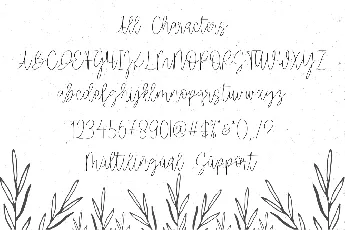 All Characters
ABCDEFGHIJKLMNOPQRSTUVWXYZ
abcdefghijklmnopqrstuvwxyz
1234567890!@#$%&*(),/?
Multilingual Support